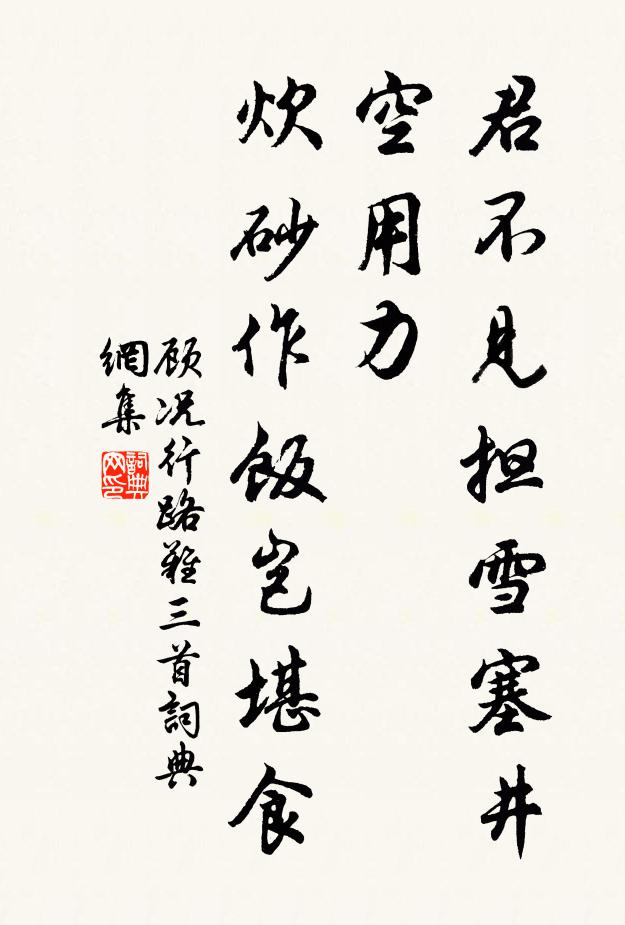 君不见担雪塞井
空用力
炊砂作飯岂堪食
顾况行路難三首詞典
網集
詞典
网印